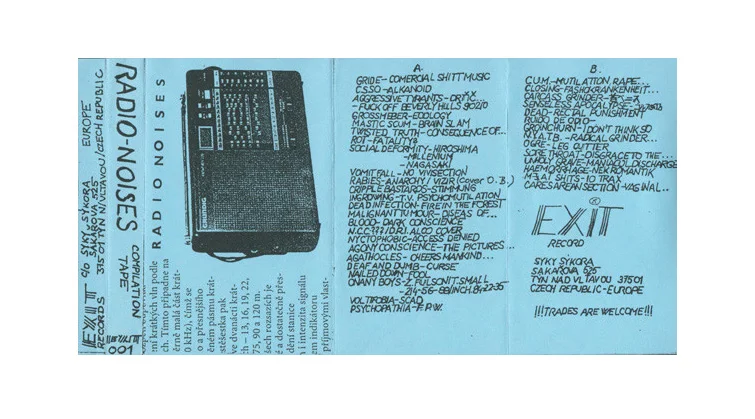 EXIT RECORDS
c/o SYKY SÝKORA
SAKAŘOVA 525
37501 TÝN N/VLTAVOU/CZECH REPUBLIC
EUROPE
001
RADIO-NOISES
COMPILATION
TAPE
RADIO NOISES
GRUNDIG
ní krátkých vln podle
ch. Tímto případne na
érně malá část krát-
0 kHz), čímž se
o a přesnějšího
ěném pásmu krát-
stěšestka pak
ve dvanácti krát-
h – 13, 16, 19, 22,
75, 90 a 120 m.
šech rozsazích je
é a dostatečně přes-
dění stanice
i intenzita signálu
em indikátoru
příjmovými vlast-
A.
GRIDE-COMERCIAL SHITT MUSIC
C.S.S.O-ALKANOID
AGGRESSIVE TYRANTS-
-FUCK OFF BEVERLY HILLS 90210
GROSSMEBER-ECOLOGY
MASTIC SCUM-BRAIN SLAM
TWISTED TRUTH-CONSEQUENCE OF...
ROT-FATALITY?
SOCIAL DEFORMITY-HIROSHIMA
-MILLENIUM
-NAGASAKI
VOMIT FALL-NO VIVISECTION
RABIES-ANARCHY/VIZIR (Cover O.B.)
CRIPPLE BASTARDS-STIMMUNG
INGROWING-T.V. PSYCHOMUTILATION
DEAD INFECTION-FIRE IN THE FOREST
MALIGNANT TUMOUR-DISEAS OF...
BLOOD-DARK CONSCIENCE
N.C.C.??? /D.R.I. ALCO COVER
NYCTOPHOBIC-ACCESS DENIED
AGONY CONSCIENCE-THE PICTURES...
AGATHOCLES-CHEERS MANKIND...
DEAF AND DUMB-CURSE
NAILED DOWN-FOOL
ONANY BOYS-Z. PULSONIT.SMALL
VOLTIFOBIA-SCAD
PSYCHOPATHIA-F.P.W.
B.
C.U.M.-MUTILATION, RAPE...
CLOSING-FASHOKRANKENHEIT...
CARCASS GRINDER-
SENSELESS APOCALYPSE-
DEAD-RECTAL PUNISHMENT
GRONCHURN-I DON'T THINK SO
S.Y.A.T.B.-RADICAL GRINDER...
OGRE-LEG CUTTER
SORE THROAT-DISGRACE TO THE...
UNHOLY GRAVE-MANAGOL DISCHARGE
HAEMORRHAGE-NEKROMANTIK
MEAT SHITS-10 TRAX
CARESAREAN SECTION-VAGINAL..
EXIT
RECORD
SYKY SÝKORA
SAKAŘOVA 525
TÝN NAD VLTAVOU 37501
CZECH REPUBLIC-EUROPE
!!!TRADES ARE WELCOME!!!